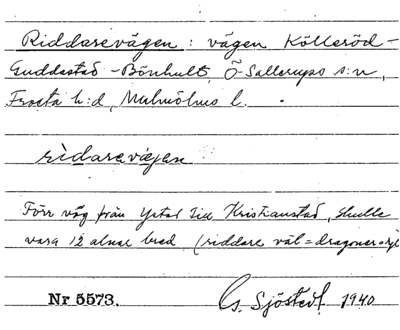 Riddarevägen : vägen Kölleröd –
Guddastad – Bönhult, Ö-Sallerups s:n,
Frosta h:d, Malmöhus l.
ridarevägen
Förr väg från Ystad till Kristianstad, skulle
vara 12 alnar bred (riddare väl = dragoner o.
Nr 5573. G. Sjöstedt. 1940